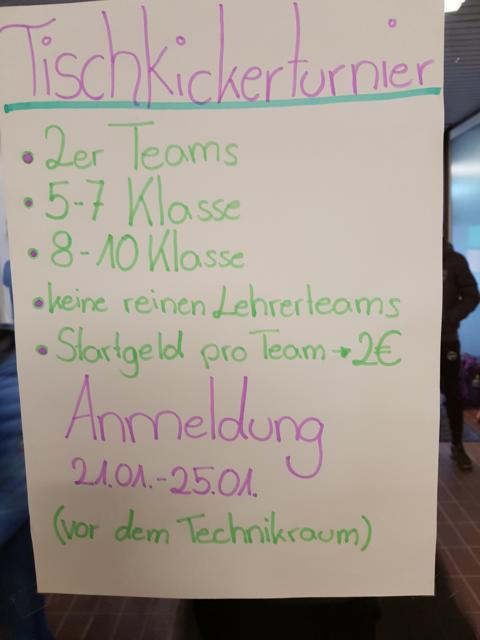 Tischkickerturnier
• 2er Teams
• 5-7 Klasse
• 8-10 Klasse
• keine reinen Lehrerteams
• Startgeld pro Team → 2€
Anmeldung
21.01.-25.01.
(vor dem Technikraum)